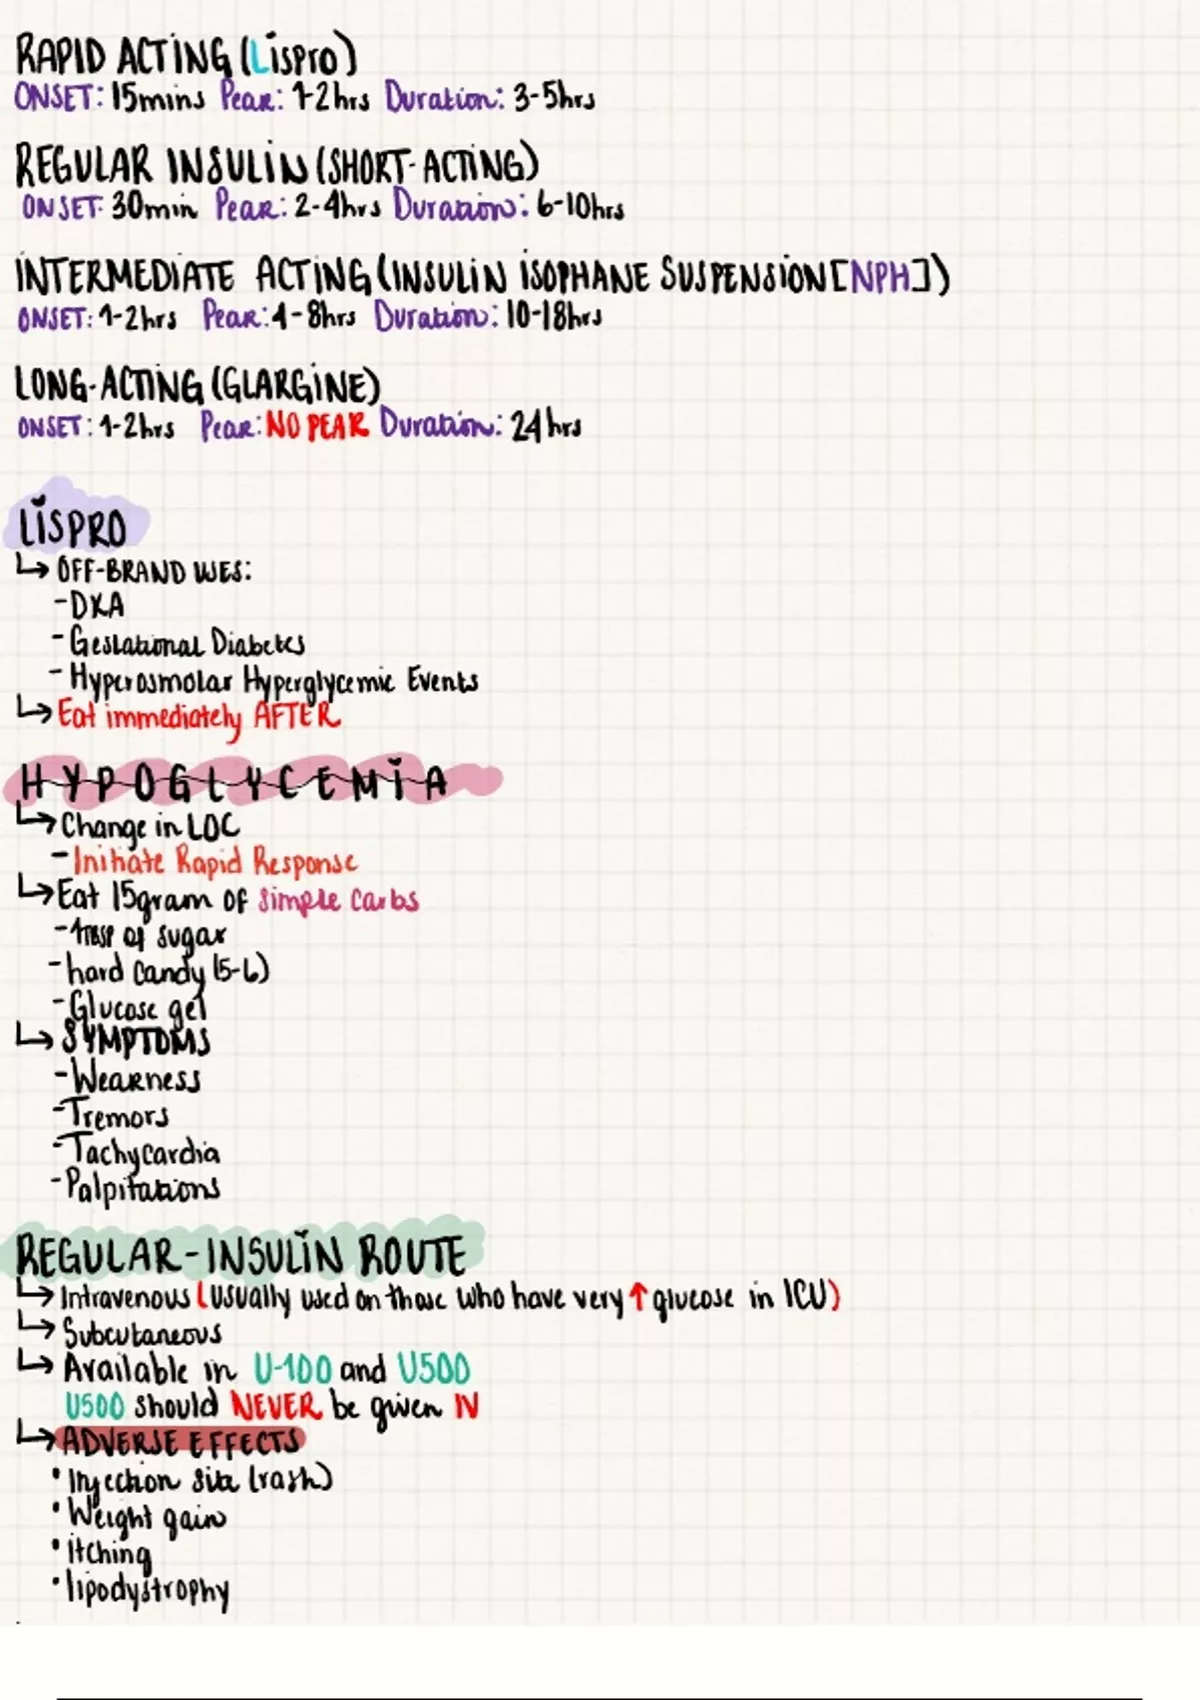 RAPID ACTING (Lispro)
ONSET: 15mins Peak: 1-2hrs Duration: 3-5hrs
REGULAR INSULIN (SHORT-ACTING)
ONSET: 30min Peak: 2-4hrs Duration: 6-10hrs
INTERMEDIATE ACTING (INSULIN ISOPHANE SUSPENSION [NPH])
ONSET: 1-2hrs Peak: 4-8hrs Duration: 10-18hrs
LONG-ACTING (GLARGINE)
ONSET: 1-2hrs Peak: NO PEAK Duration: 24hrs
LISPRO
↳ OFF-BRAND USES:
-DKA
-Gestational Diabetes
-Hyperosmolar Hyperglycemic Events
↳ Eat immediately AFTER
HYPOGLYCEMIA
↳ Change in LOC
-Initiate Rapid Response
↳ Eat 15gram of simple carbs
-1TBSP of sugar
-hard candy (5-6)
-Glucose gel
↳ SYMPTOMS
-Weakness
-Tremors
-Tachycardia
-Palpitations
REGULAR-INSULIN ROUTE
↳ Intravenous (usually used on those who have very ↑ glucose in ICU)
↳ Subcutaneous
↳ Available in U-100 and U500
U500 should NEVER be given IV
↳ ADVERSE EFFECTS
• Injection site (rash)
• Weight gain
• itching
• lipodystrophy